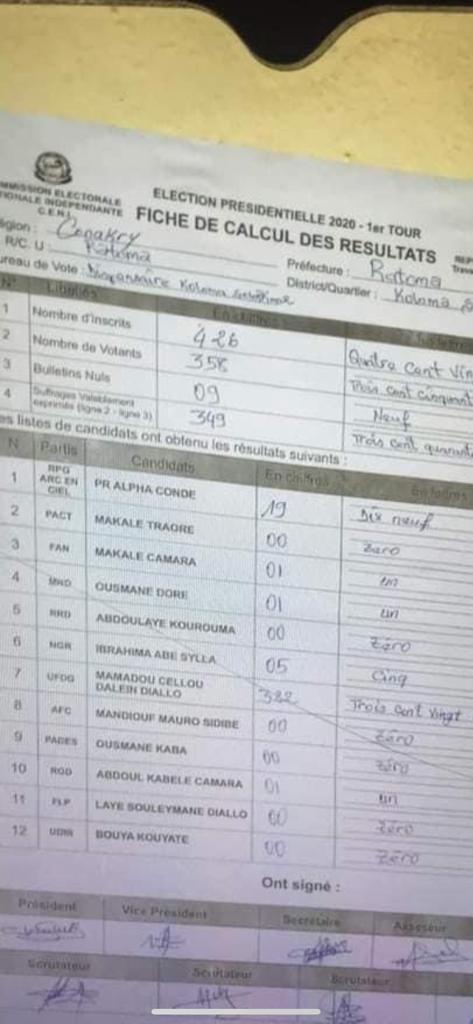 MMISSION ELECTORALE
TIONALE INDEPENDANTE
C.E.N.I
ELECTION PRESIDENTIELLE 2020 - 1er TOUR
FICHE DE CALCUL DES RESULTATS
égion : Conakry
Préfecture : Ratoma
R/C. U : Ratoma
District/Quartier : Koloma
ureau de Vote : Koloma
N° Libellés En chiffres
1 Nombre d'inscrits 426 Quatre Cent Vin
2 Nombre de Votants 358 Trois cent cinquant
3 Bulletins Nuls 09 Neuf
4 Suffrages Valablement exprimés (ligne 2 - ligne 3) 349 Trois cent quarant
es listes de candidats ont obtenu les résultats suivants :
N Partis Candidats En chiffres En lettres
1 RPG ARC EN CIEL PR ALPHA CONDE 19 Dix neuf
2 PACT MAKALE TRAORE 00 Zero
3 FAN MAKALE CAMARA 01 un
4 MND OUSMANE DORE 01 un
5 RRD ABDOULAYE KOUROUMA 00 Zéro
6 NGR IBRAHIMA ABE SYLLA 05 Cinq
7 UFDG MAMADOU CELLOU DALEIN DIALLO Trois cent vingt
8 AFC MANDIOUF MAURO SIDIBE 00 Zéro
9 PADES OUSMANE KABA 00 Zéro
10 RGD ABDOUL KABELE CAMARA 01 un
11 PLP LAYE SOULEYMANE DIALLO 00 Zéro
12 UDIR BOUYA KOUYATE 00 Zéro
Ont signé :
Président Vice Président Secrétaire Assesseur
Scrutateur Scrutateur Scrutateur